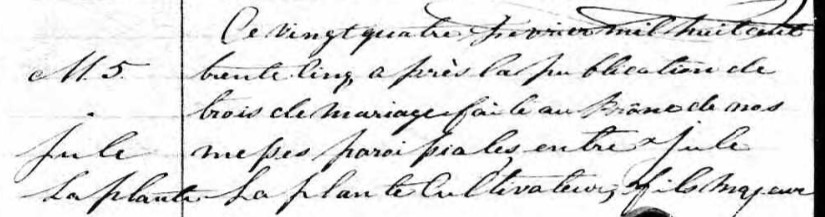 Ce vingt quatre fevrier mil huit cent
M. 5. trente cinq après la publication de
trois de mariage faite au Prône de nos
Jule messes paroissiales entre Jule
Laplante Laplante Cultivateur, fils majeur